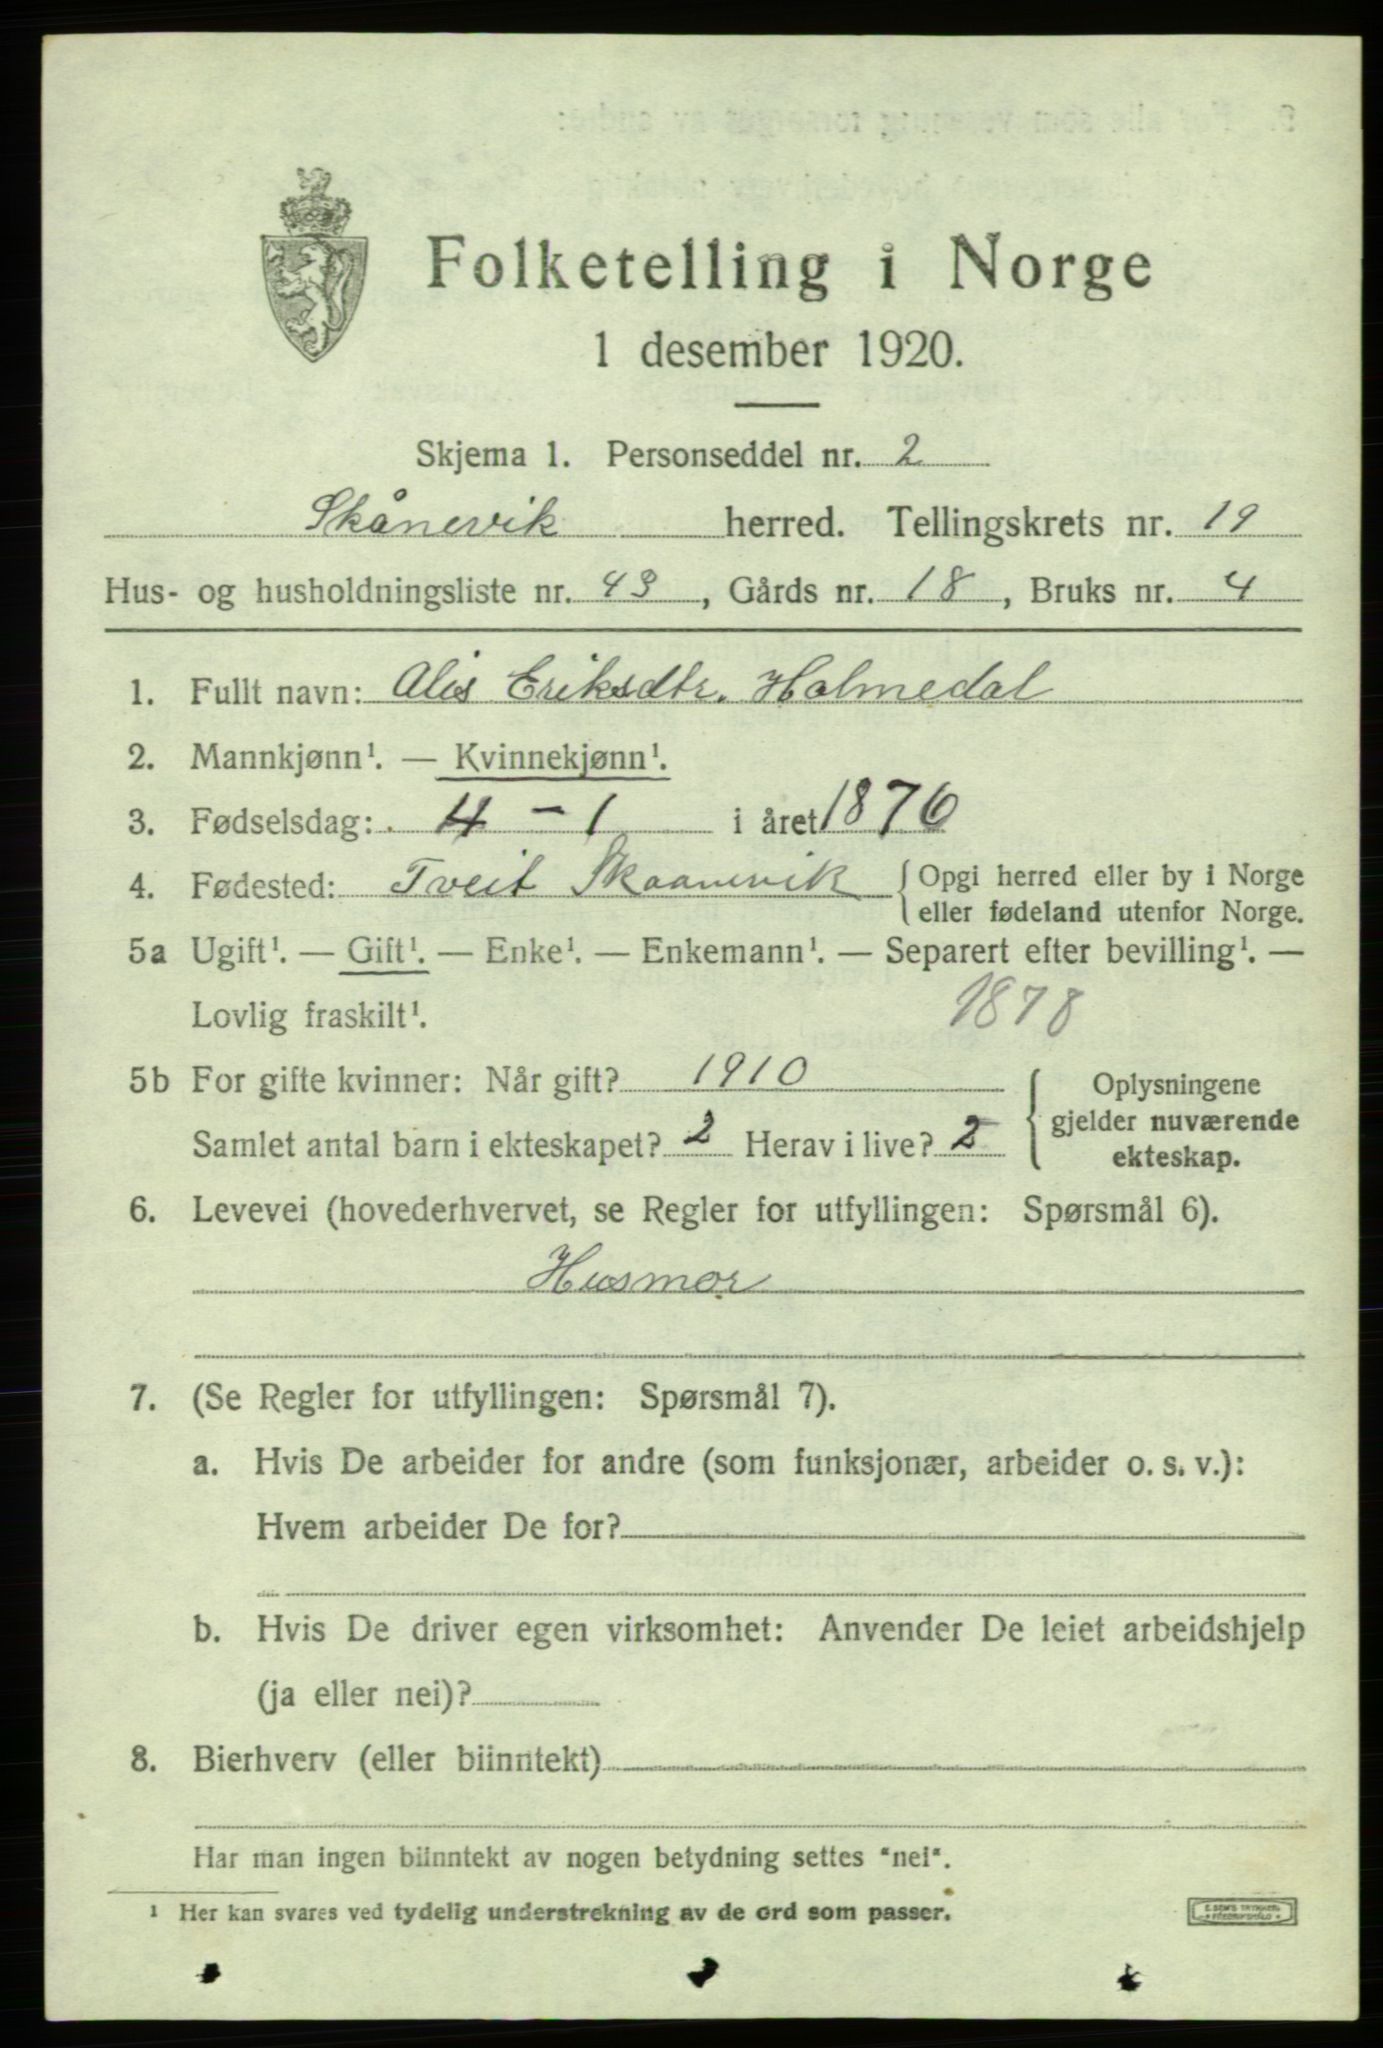 Folketelling i Norge
1 desember 1920.
Skjema 1. Personseddel nr. 2
Skånevik herred. Tellingskrets nr. 19
Hus- og husholdningsliste nr. 43, Gårds nr. 18, Bruks nr. 4
1. Fullt navn: Alis Eriksdtr. Holmedal
2. Mannkjønn¹. — Kvinnekjønn¹.
3. Fødselsdag: 4 - 1 i året 1876
4. Fødested: Tveit Skaanevik { Opgi herred eller by i Norge
eller fødeland utenfor Norge.
5a Ugift¹. — Gift¹. — Enke¹. — Enkemann¹. — Separert efter bevilling¹. —
Lovlig fraskilt¹. 1878
5b For gifte kvinner: Når gift? 1910
Samlet antal barn i ekteskapet? 2 Herav i live? 2
{ Oplysningene
gjelder nuværende
ekteskap.
6. Levevei (hovederhvervet, se Regler for utfyllingen: Spørsmål 6).
Husmor
7. (Se Regler for utfyllingen: Spørsmål 7).
a. Hvis De arbeider for andre (som funksjonær, arbeider o. s. v.):
Hvem arbeider De for?
b. Hvis De driver egen virksomhet: Anvender De leiet arbeidshjelp
(ja eller nei)?
8. Bierhverv (eller biinntekt)
Har man ingen biinntekt av nogen betydning settes "nei".
¹ Her kan svares ved tydelig understrekning av de ord som passer.